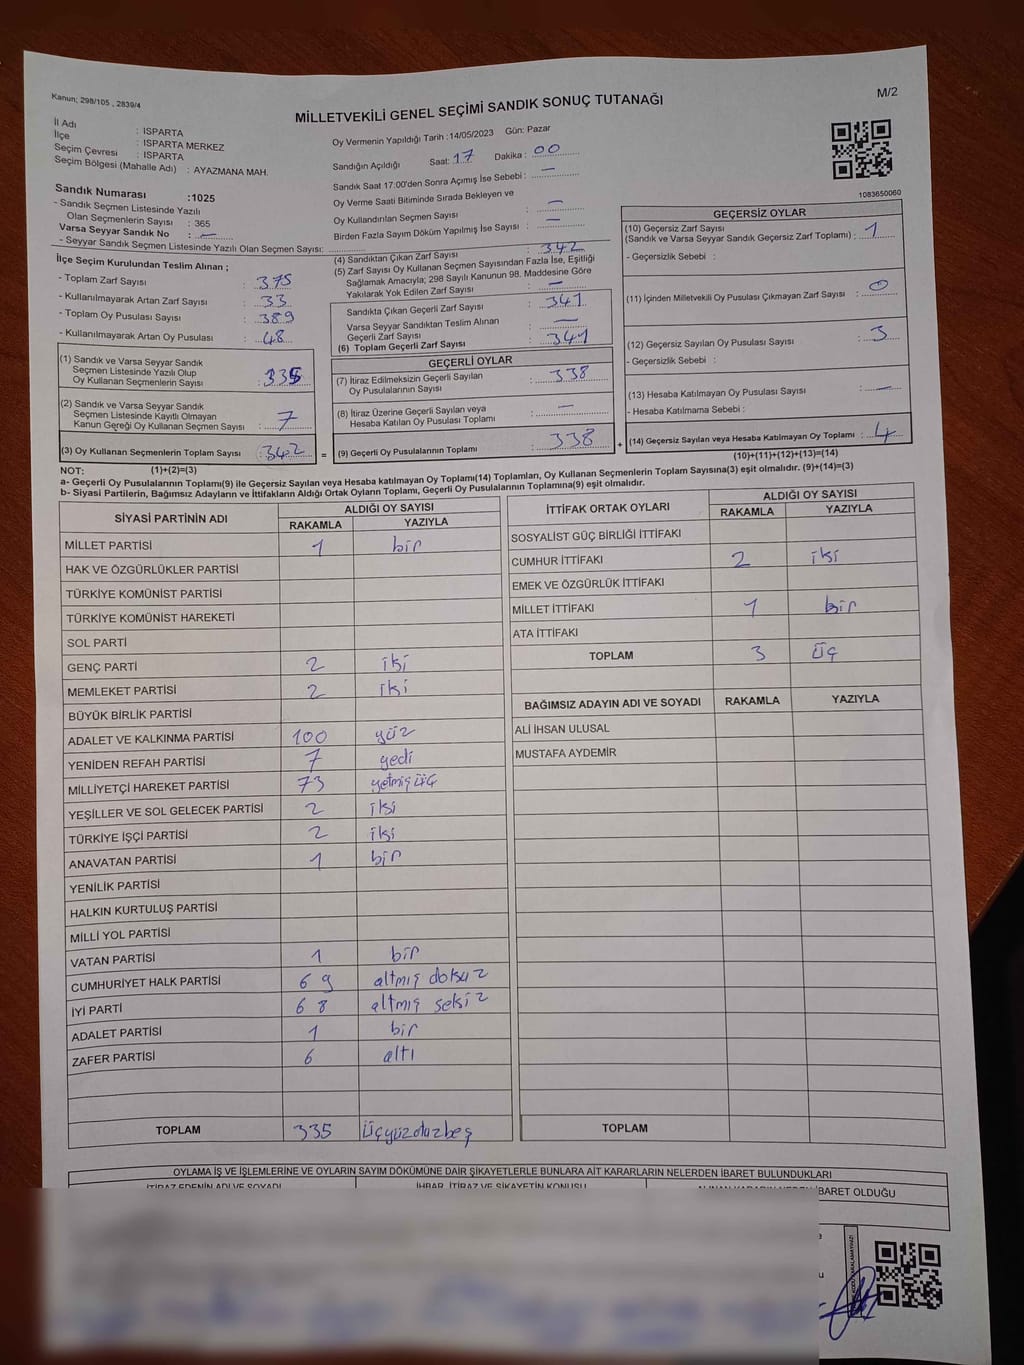 Kanun; 298/105 , 2839/4
MİLLETVEKİLİ GENEL SEÇİMİ SANDIK SONUÇ TUTANAĞI
M/2
İl Adı : ISPARTA
İlçe : ISPARTA MERKEZ
Seçim Çevresi : ISPARTA
Seçim Bölgesi (Mahalle Adı) : AYAZMANA MAH.
Oy Vermenin Yapıldığı Tarih :14/05/2023 Gün: Pazar
Sandığın Açıldığı Saat: 17 Dakika : 00
Sandık Saat 17:00'den Sonra Açımış İse Sebebi : —
Oy Verme Saati Bitiminde Sırada Bekleyen ve
Oy Kullandırılan Seçmen Sayısı : —
Birden Fazla Sayım Döküm Yapılmış İse Sayısı : —
1083650060
Sandık Numarası :1025
- Sandık Seçmen Listesinde Yazılı
Olan Seçmenlerin Sayısı : 365
Varsa Seyyar Sandık No : —
- Seyyar Sandık Seçmen Listesinde Yazılı Olan Seçmen Sayısı:
İlçe Seçim Kurulundan Teslim Alınan ;
- Toplam Zarf Sayısı : 375
- Kullanılmayarak Artan Zarf Sayısı : 33
- Toplam Oy Pusulası Sayısı : 389
- Kullanılmayarak Artan Oy Pusulası : 48
(1) Sandık ve Varsa Seyyar Sandık
Seçmen Listesinde Yazılı Olup
Oy Kullanan Seçmenlerin Sayısı : 335
(2) Sandık ve Varsa Seyyar Sandık
Seçmen Listesinde Kayıtlı Olmayan
Kanun Gereği Oy Kullanan Seçmen Sayısı : 7
(3) Oy Kullanan Seçmenlerin Toplam Sayısı : 342 =
(4) Sandıktan Çıkan Zarf Sayısı : 342
(5) Zarf Sayısı Oy Kullanan Seçmen Sayısından Fazla İse, Eşitliği
Sağlamak Amacıyla; 298 Sayılı Kanunun 98. Maddesine Göre
Yakılarak Yok Edilen Zarf Sayısı : —
Sandıkta Çıkan Geçerli Zarf Sayısı : 341
Varsa Seyyar Sandıktan Teslim Alınan
Geçerli Zarf Sayısı : —
(6) Toplam Geçerli Zarf Sayısı : 341
GEÇERLİ OYLAR
(7) İtiraz Edilmeksizin Geçerli Sayılan
Oy Pusulalarının Sayısı : 338
(8) İtiraz Üzerine Geçerli Sayılan veya
Hesaba Katılan Oy Pusulası Toplamı : —
(9) Geçerli Oy Pusulalarının Toplamı : 338 +
GEÇERSİZ OYLAR
(10) Geçersiz Zarf Sayısı
(Sandık ve Varsa Seyyar Sandık Geçersiz Zarf Toplamı) : 1
- Geçersizlik Sebebi :
(11) İçinden Milletvekili Oy Pusulası Çıkmayan Zarf Sayısı : 0
(12) Geçersiz Sayılan Oy Pusulası Sayısı : 3
- Geçersizlik Sebebi :
(13) Hesaba Katılmayan Oy Pusulası Sayısı : —
- Hesaba Katılmama Sebebi :
(14) Geçersiz Sayılan veya Hesaba Katılmayan Oy Toplamı : 4
NOT: (1)+(2)=(3)
(10)+(11)+(12)+(13)=(14)
a- Geçerli Oy Pusulalarının Toplamı(9) ile Geçersiz Sayılan veya Hesaba katılmayan Oy Toplamı(14) Toplamları, Oy Kullanan Seçmenlerin Toplam Sayısına(3) eşit olmalıdır. (9)+(14)=(3)
b- Siyasi Partilerin, Bağımsız Adayların ve İttifakların Aldığı Ortak Oyların Toplamı, Geçerli Oy Pusulalarının Toplamına(9) eşit olmalıdır.
SİYASİ PARTİNİN ADI ALDIĞI OY SAYISI
RAKAMLA YAZIYLA
MİLLET PARTİSİ 1 bir
HAK VE ÖZGÜRLÜKLER PARTİSİ
TÜRKİYE KOMÜNİST PARTİSİ
TÜRKİYE KOMÜNİST HAREKETİ
SOL PARTİ
GENÇ PARTİ 2 iki
MEMLEKET PARTİSİ 2 iki
BÜYÜK BİRLİK PARTİSİ
ADALET VE KALKINMA PARTİSİ 100 yüz
YENİDEN REFAH PARTİSİ 7 yedi
MİLLİYETÇİ HAREKET PARTİSİ 73 yetmiş üç
YEŞİLLER VE SOL GELECEK PARTİSİ 2 iki
TÜRKİYE İŞÇİ PARTİSİ 2 iki
ANAVATAN PARTİSİ 1 bir
YENİLİK PARTİSİ
HALKIN KURTULUŞ PARTİSİ
MİLLİ YOL PARTİSİ
VATAN PARTİSİ 1 bir
CUMHURİYET HALK PARTİSİ 69 altmış dokuz
İYİ PARTİ 68 altmış sekiz
ADALET PARTİSİ 1 bir
ZAFER PARTİSİ 6 altı
TOPLAM 335 üçyüzotuzbeş
İTTİFAK ORTAK OYLARI ALDIĞI OY SAYISI
RAKAMLA YAZIYLA
SOSYALİST GÜÇ BİRLİĞİ İTTİFAKI
CUMHUR İTTİFAKI 2 iki
EMEK VE ÖZGÜRLÜK İTTİFAKI
MİLLET İTTİFAKI 1 bir
ATA İTTİFAKI
TOPLAM 3 üç
BAĞIMSIZ ADAYIN ADI VE SOYADI RAKAMLA YAZIYLA
ALİ İHSAN ULUSAL
MUSTAFA AYDEMİR
TOPLAM
OYLAMA İŞ VE İŞLEMLERİNE VE OYLARIN SAYIM DÖKÜMÜNE DAİR ŞİKAYETLERLE BUNLARA AİT KARARLARIN NELERDEN İBARET BULUNDUKLARI
İTİRAZ EDENİN ADI VE SOYADI İHBAR, İTİRAZ VE ŞİKAYETİN KONUSU ALINAN KARARIN NEDEN İBARET OLDUĞU